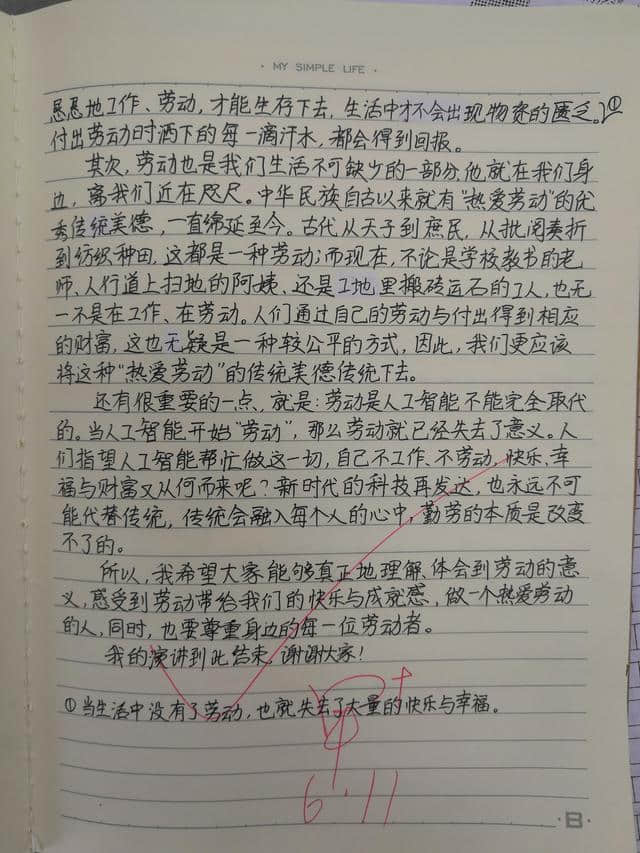 · MY SIMPLE LIFE ·
恳恳地工作、劳动，才能生存下去，生活中才不会出现物资的匮乏。①
付出劳动时洒下的每一滴汗水，都会得到回报。
其次，劳动也是我们生活不可缺少的一部分，他就在我们身
边，离我们近在咫尺。中华民族自古以来就有“热爱劳动”的优
秀传统美德，一直绵延至今。古代从天子到庶民，从批阅奏折
到纺织种田，这都是一种劳动；而现在，不论是学校教书的老
师、人行道上扫地的阿姨、还是工地里搬砖运石的工人，也无
一不是在工作、在劳动。人们通过自己的劳动与付出得到相应
的财富，这也无疑是一种较公平的方式，因此，我们更应该
将这种“热爱劳动”的传统美德传统下去。
还有很重要的一点，就是：劳动是人工智能不能完全取代
的。当人工智能开始“劳动”，那么劳动就已经失去了意义。人
们指望人工智能帮忙做这一切，自己不工作、不劳动，快乐、幸
福与财富又从何而来呢？新时代的科技再发达，也永远不可
能代替传统，传统会融入每个人的心中，勤劳的本质是改变
不了的。
所以，我希望大家能够真正地理解、体会到劳动的意
义，感受到劳动带给我们的快乐与成就感，做一个热爱劳动
的人，同时，也要尊重身边的每一位劳动者。
我的演讲到此结束，谢谢大家！
①当生活中没有了劳动，也就失去了大量的快乐与幸福。
甲+
6.11
·B·